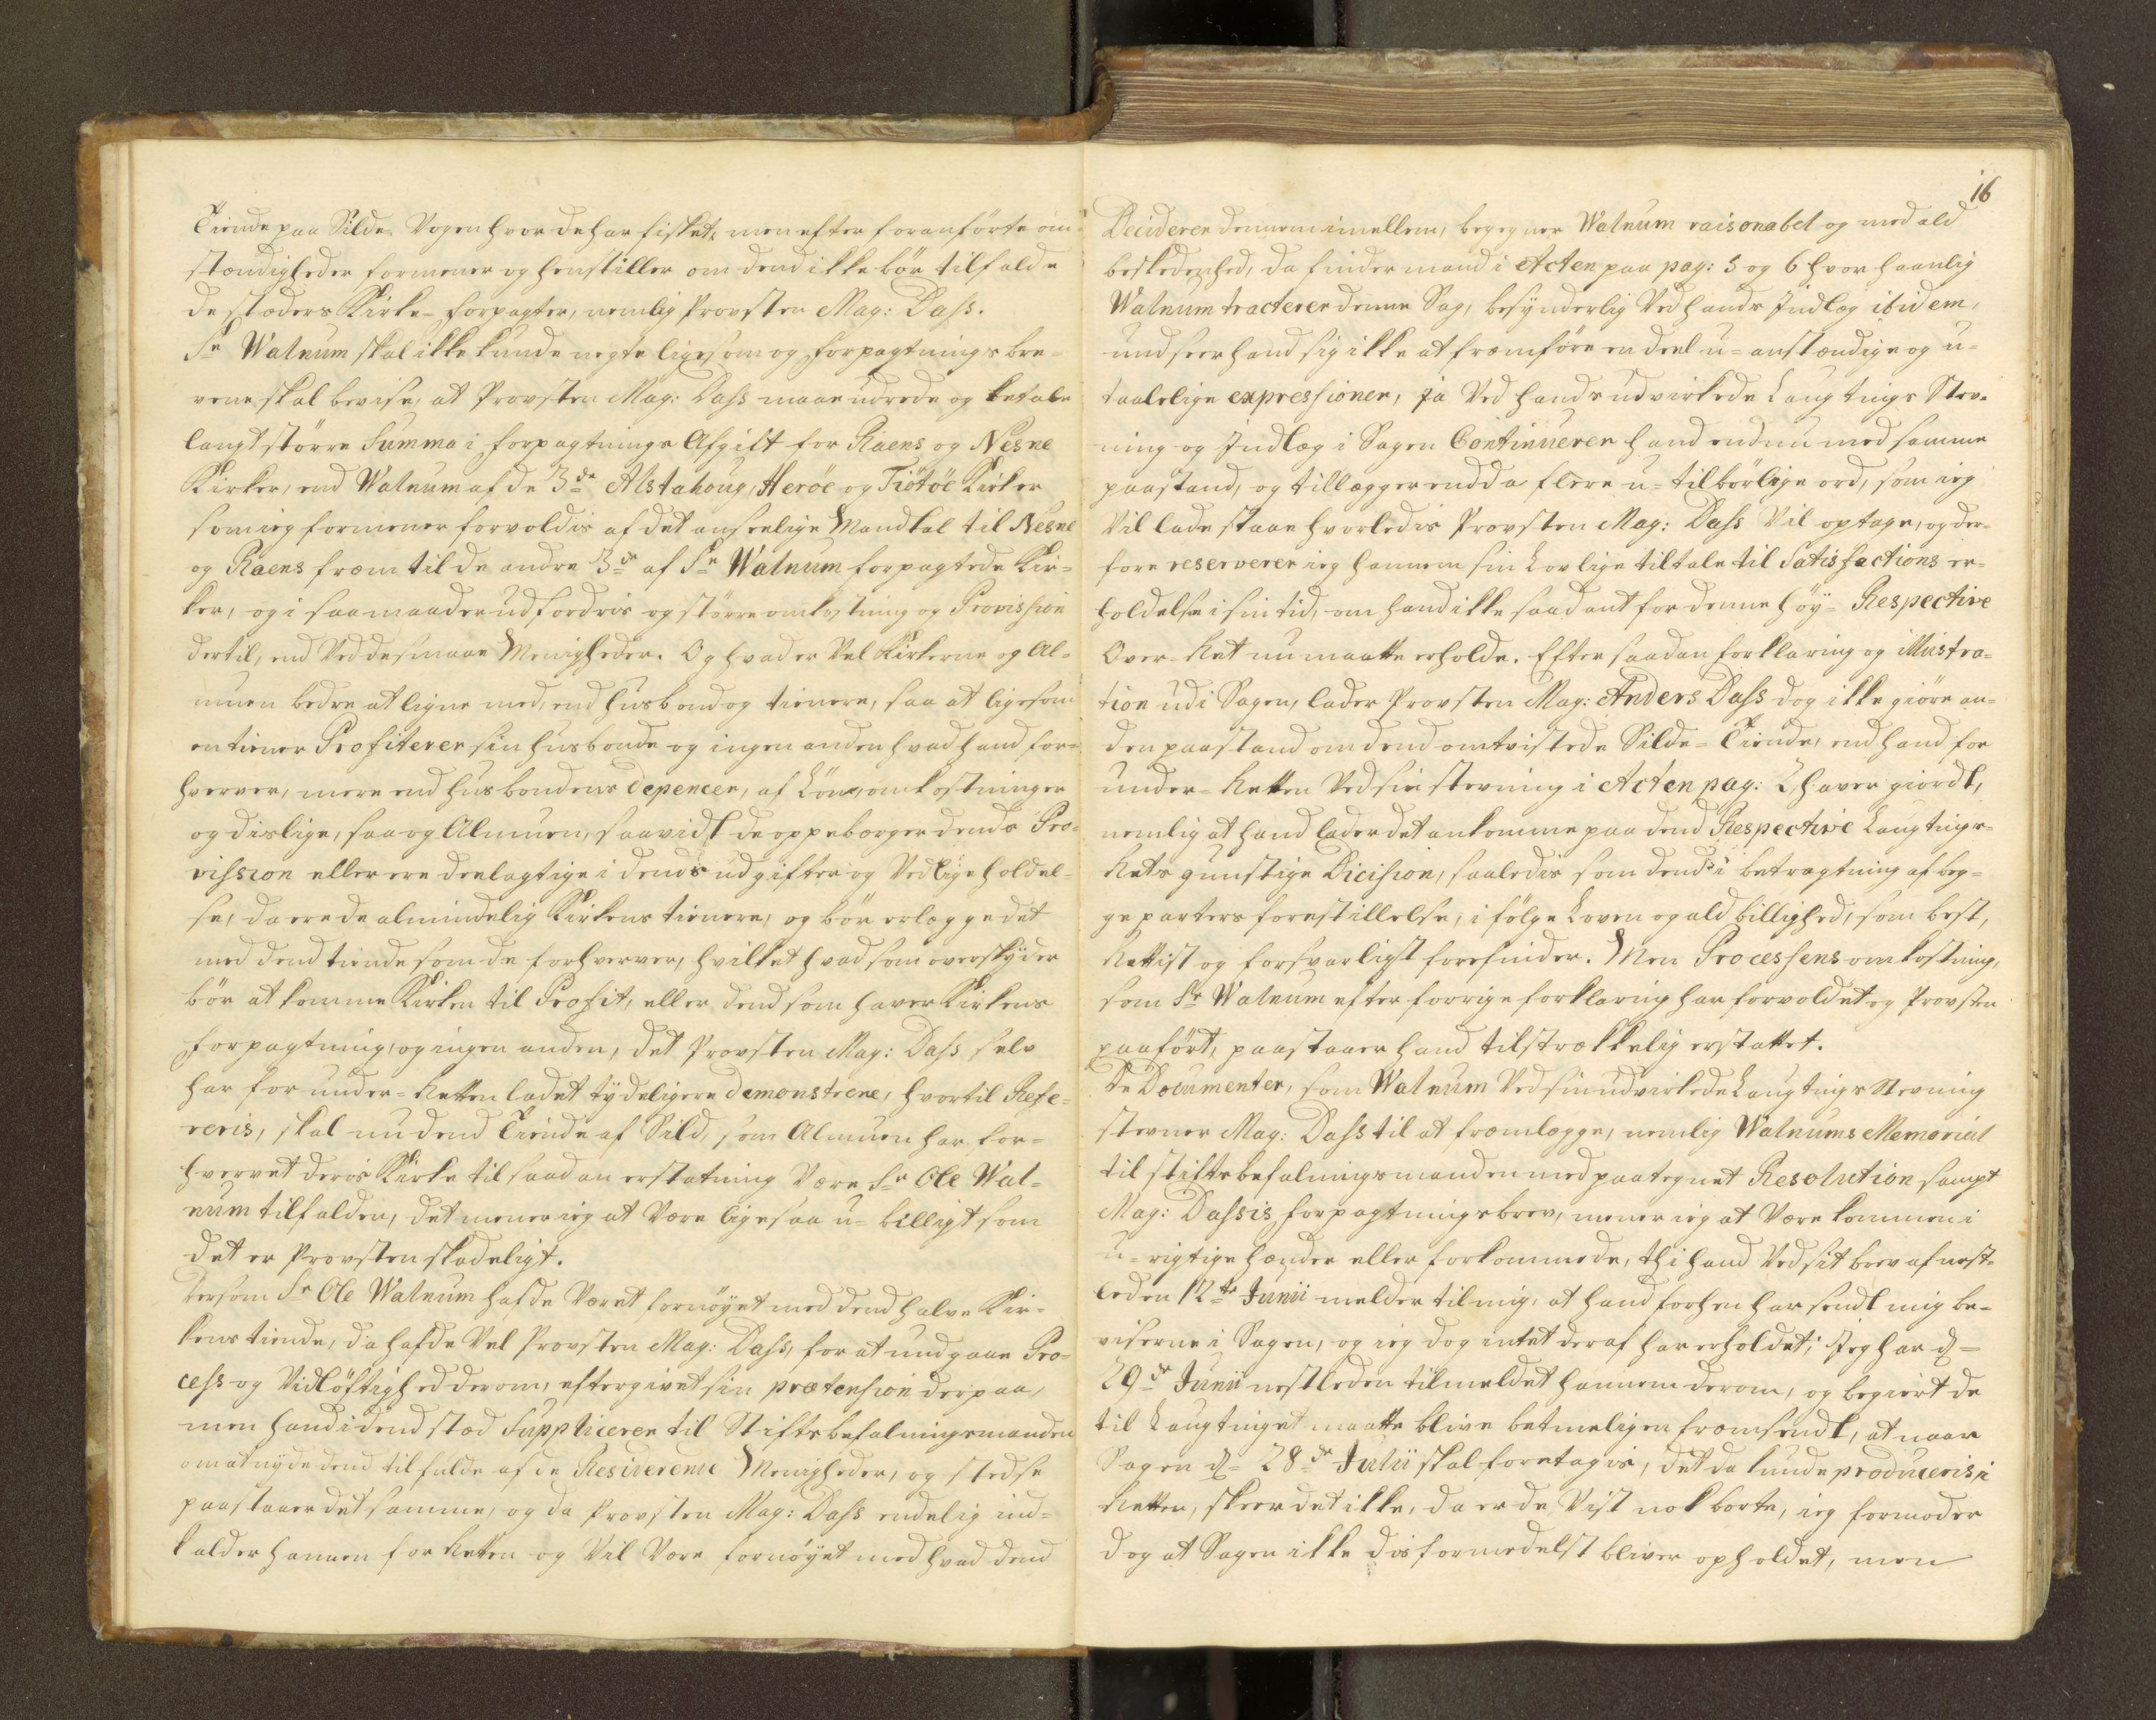 Tiende paa Silde Vogen hvor de har fisket, men efter foranførte om-
stændigheder formener og henstiller om dend ikke bör tilfalde
de stæders Kirke-forpagter, nemlig Provsten Mag: Dass.
Sr Walnum skal ikke kunde negte ligesom og forpagtnings bre-
vene skal bevise, at Provsten Mag: Dass maae udrede og betale
langt större Summa i forpagtnings Afgift for Raens og Nesne
Kirker, end Walnum af de 3de Alstahoug, Heröe og Tiötöe Kirker
som ieg formener forvoldis af det anseelige Mandtal til Nesne
og Raens frem til de andre 3de af Sr Walnum forpagtede Kir-
ker, og i saa maader udfordris og större omkostning og Provission
dertil, end ved de smaae Menigheder. Og hvad er vel Kirkerne og Al-
muen bedre at ligne med, end husbond og tienere, saa at ligesom
en tiener Profiterer sin husbonde og ingen anden hvad hand for-
hverver, mere end husbondens depencer, af Lön, omkostninger
og dislige, saa og Almuen, saavidt de oppebærger dends Pro-
vission eller ere deelagtige i dends udgifter og Vedligeholdel-
se, da ere de almindelig Kirkens tienere, og bör erlægge det
med dend tiende som de forhverver, hvilket hvad som overskyder
bör at komme Kirken til Profit, eller dend som haver Kirkens
forpagtning, og ingen anden, det Provsten Mag: Dass selv
har for under-Retten ladet tydeligere demonstrere, hvortil Refe-
reris, skal nu dend Tiende af Sild, som Almuen har for-
hvervet deris Kirke til saadan erstatning være Sr Ole Wal-
num tilfalden, det mener ieg at være ligesaa u-billigt som
det er Provsten skadeligt.
Dersom Sr Ole Walnum hafde været fornöyet med dend halve Kir-
kens tiende, da hafde vel Provsten Mag: Dass, for at undgaae Pro-
cess og Vidlöftighed derom, eftergivet sin prætension derpaa,
men hand i dend stæd Suppliceren til Stiftsbefalningsmanden
om at nyde dend til fulde af de Resiverende Menigheder, og stedse
paastaaer det samme, og da Provsten Mag: Dass endelig ind-
kalder hannem for Retten og Vil være fornöyet med hvad dend
16
Deciderer dennem imellem, begegner Walnum raisonabel og med ald
beskedenhed, da finder mand i Acten paa pag: 5 og 6 hvor haanlig
Walnum tracterer denne Sag, besynderlig ved hands Indlæg ibidem,
undseer hand sig ikke at fremföre en deel u-anstændige og u-
taalelige expressioner, ja ved hands udvirkede Laugtings Stev-
ning og Indlæg i Sagen Continuerer hand endnu med samme
paastand, og tillægger endda flere u-tilbörlige ord, som ieg
Vil lade staae hvorledis Provsten Mag: Dass Vil optage, og der-
fore reserverer ieg hannem sin Lovlige tiltale til Satisfactions er-
holdelse i sin tid, om hand ikke saadant for denne höy-Respective
Over-Ret nu maatte erholde. Efter saadan forklaring og illustra-
tion udi Sagen, lader Provsten Mag: Anders Dass dog ikke giöre an-
den paastand om dend omtvistede Silde-Tiende, end hand for
under-Retten ved sin stevning i Acten pag: 2, haver giordt,
nemlig at hand lader det ankomme paa dend Respective Laugtings-
Rets gunstige Dicision, saaledis som dend i betragtning af beg-
ge parters forestillelse, i fölge Loven og ald billighed, som best,
Rettist og forsvarligst forefinder. Men Processens omkostning,
som Sr Walnum efter forrige forklaring har forvoldet og Provsten
paafört, paastaaer hand tilstrekkelig erstattet.
De Documenter, som Walnum ved sin udvirkede Laugtings Stevning
stevner Mag: Dass til at fremlægge, nemlig Walnums Memorial
til stiftsbefalningsmanden med paategnet Resolution sampt
Mag: Dassis forpagtningsbrev, mener ieg at være kommen i
u-rigtige hænder eller forkommede, thi hand ved sit brev af nest-
leden 12te Junii melder til mig, at hand forhen har sendt mig be-
viserne i Sagen, og ieg dog intet deraf har erholdet; Ieg har d-
29de Junii nestleden tilmeldet hannem derom, og begiert de
til Laugtinget maatte blive betimeligen fremsendt, at naar
Sagen d- 28de Julii skal foretagis, det da kunde produceris i
Retten, skeer det ikke, da er de Vist nok borte, ieg formoder
dog at Sagen ikke dis formedelst bliver opholdet, men